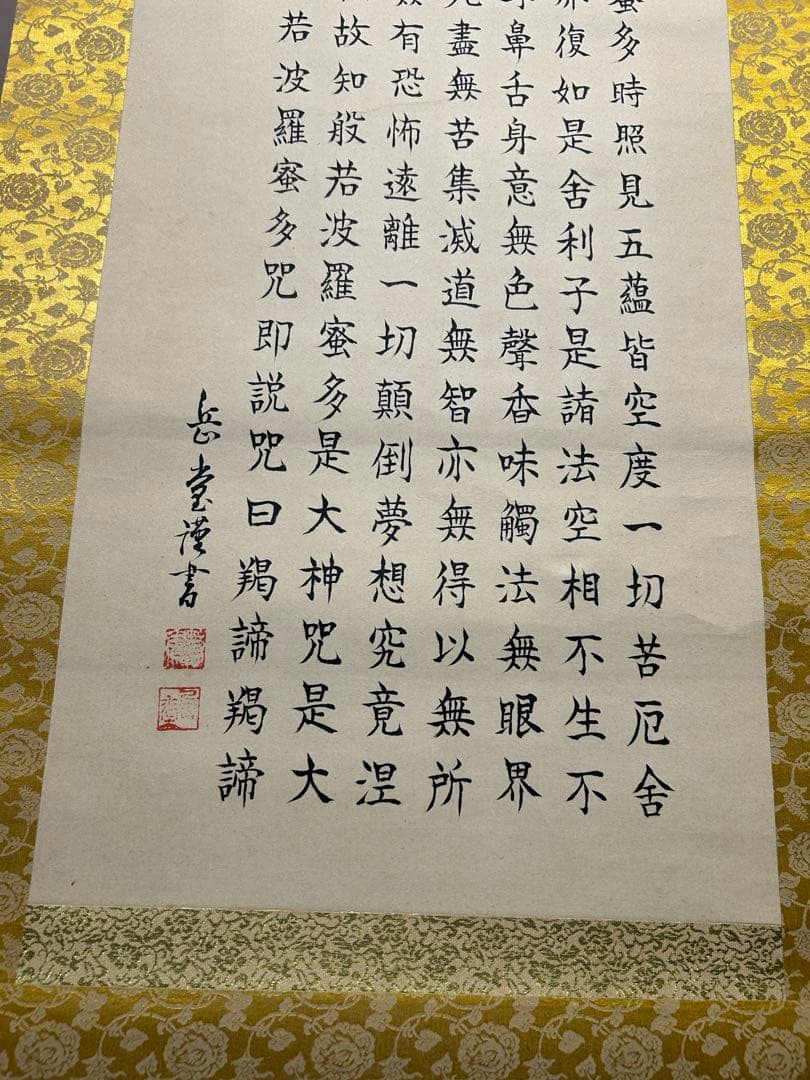 蜜多時照見五蘊皆空度一切苦厄舍
復如是舍利子是諸法空相不生不
鼻舌身意無色聲香味觸法無眼界
盡無苦集滅道無智亦無得以無所
有恐怖遠離一切顛倒夢想究竟涅
故知般若波羅蜜多是大神咒是大
若波羅蜜多咒即説咒曰羯諦羯諦
岳堂謹書